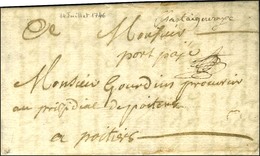 14 Juillet 1746
Monsieur
port payé
Monsieur Gourdin procureur
au présidial de poitiers
a poitiers